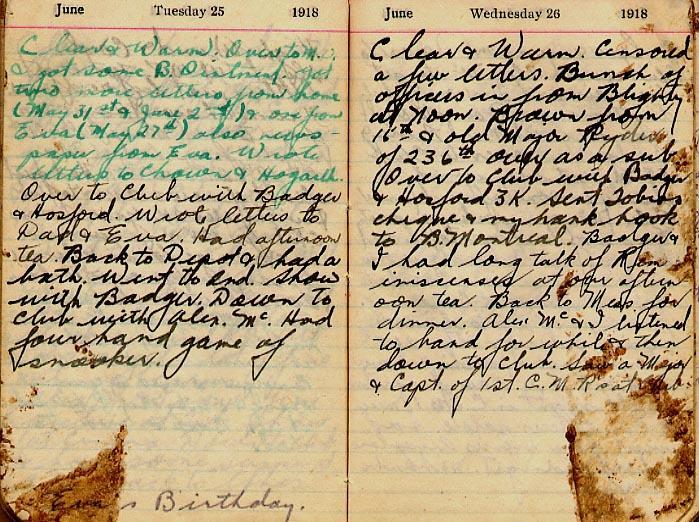 June Tuesday 25 1918
Clear & Warm. Over to M.
& got some B. Ointment. Got
two more letters from home
(May 31st & June 2nd) & one from
Eva (May 27th) also news-
paper from Eva. Wrote
letters to Chown & Hogarth.
Over to Club with Badger
& Hosford. Wrote letters to
Dad & Eva. Had afternoon
tea. Back to Depot & had a
bath. Went to 2nd. Show
with Badger. Down to
Club with Alex. Mc. Had
four hand game of
snooker.
Eva's Birthday.
June Wednesday 26 1918
Clear & Warm. Censored
a few letters. Bunch of
officers in from Blighty
at Noon. Brown from
16th & old Major Ryder
of 236th over as a sub.
Over to Club with Badger
& Hosford 3K. Sent
cheque & my bank book
to B. Montreal. Badger &
I had long talk of Rem
iniscenses at our aftern
oon tea. Back to Mess for
dinner. Alex Mc & I listened
to band for while & then
down to Club. Saw a Major
& Capt. of 1st. C.M.R. at Club